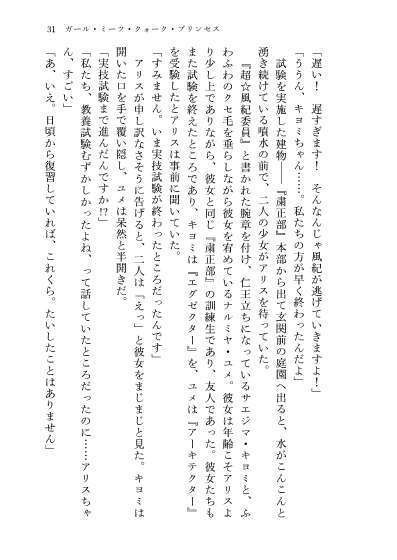 31 ガール・ミーツ・クォーク・プリンセス
「遅い！　遅すぎます！　そんなんじゃ風紀が逃げていきますよ！」
「ううん、キヨミちゃん……。私たちの方が早く終わったんだよ」
　試験を実施した建物――『粛正部』本部から出て玄関前の庭園へ出ると、水がこんこんと
湧き続けている噴水の前で、二人の少女がアリスを待っていた。
　『超☆風紀委員』と書かれた腕章を付け、仁王立ちになっているサエジマ・キヨミと、ふ
わふわのクセ毛を垂らしながら彼女を宥めているナルミヤ・ユメ。彼女は年齢こそアリスよ
り少し上でありながら、彼女と同じ『粛正部』の訓練生であり、友人であった。彼女たちも
また試験を終えたところであり、キヨミは『エグゼクター』を、ユメは『アーキテクター』
を受験したとアリスは事前に聞いていた。
「すみません。いま実技試験が終わったところだったんです」
　アリスが申し訳なさそうに告げると、二人は「えっ」と彼女をまじまじと見た。キヨミは
開いた口を手で覆い隠し、ユメは呆然と半開きだ。
「実技試験まで進んだんですか!?」
「私たち、教養試験むずかしかったよね、って話していたところだったのに……アリスちゃ
ん、すごい」
「あ、いえ。日頃から復習していれば、これくら。たいしたことはありません」